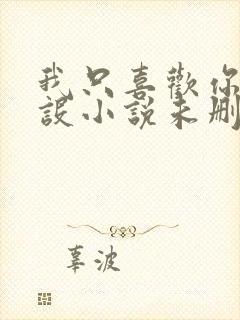 我只喜歡你
設小說未刪
辜波